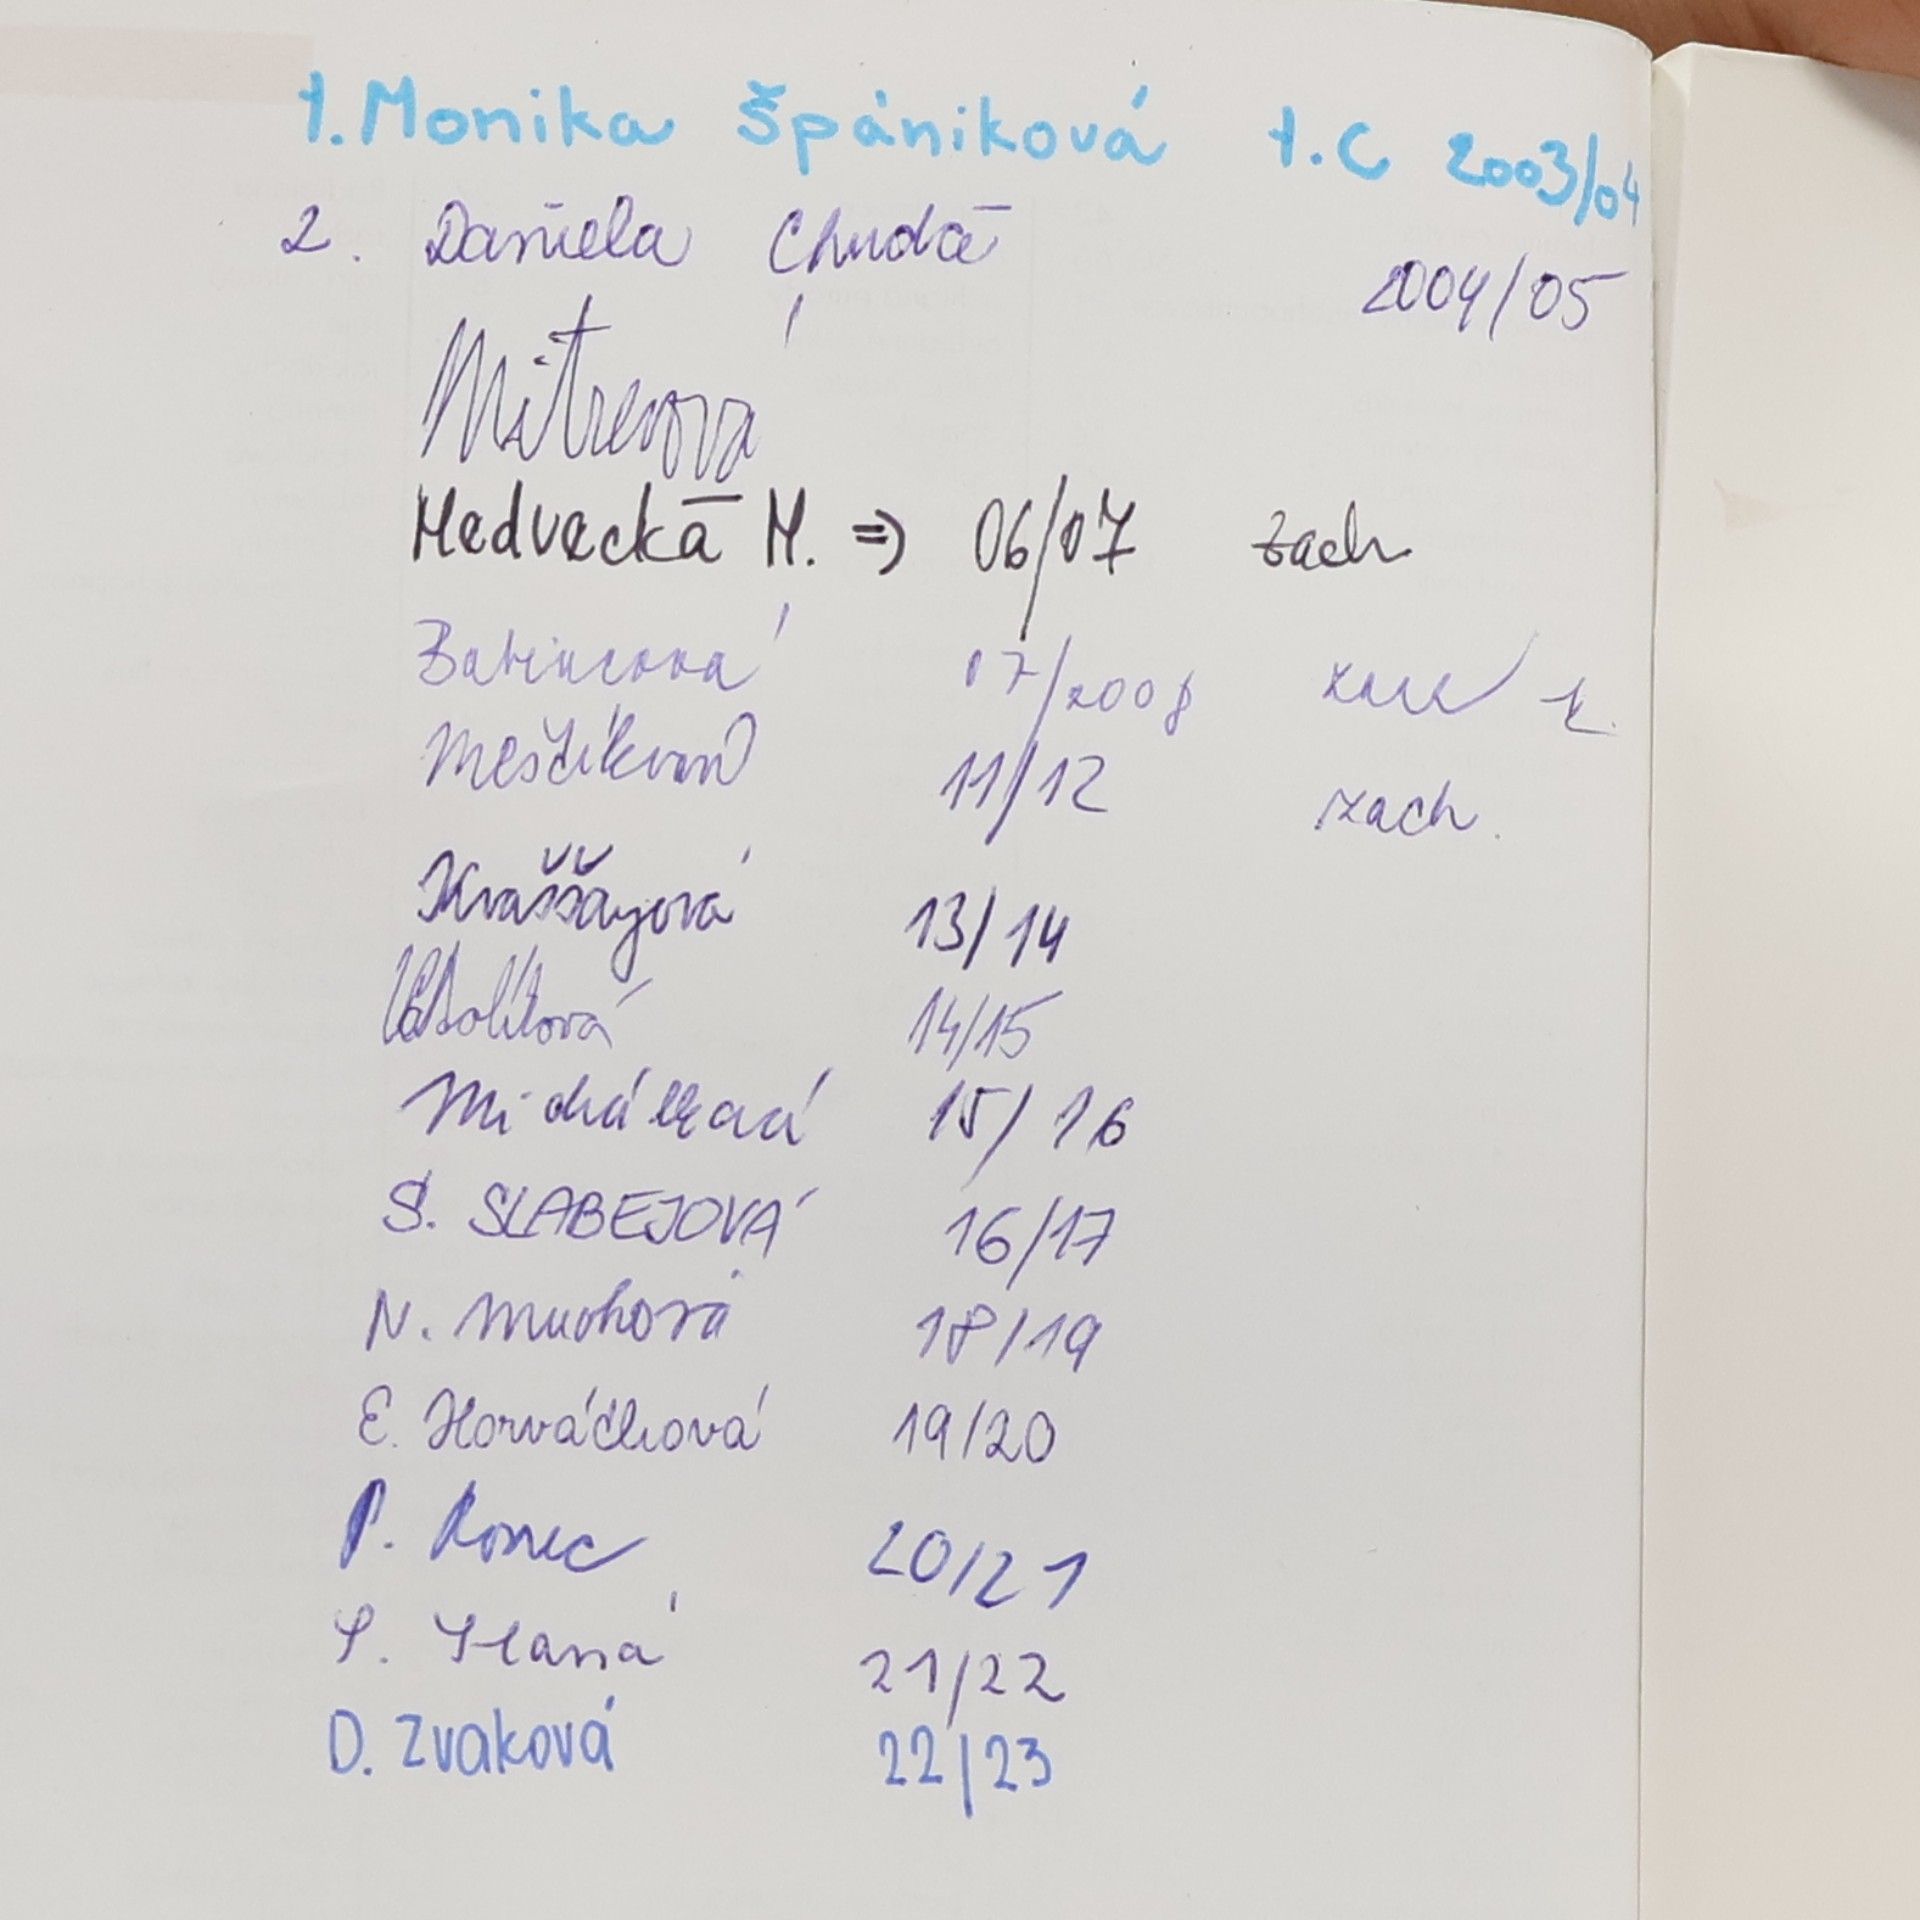 1. Monika Špániková 1.C 2003/04
2. Daniela Chudá 2004/05
Mitrová
Medvecká M. => 06/07 zach
07/2008
11/12 zach.
Kraššayová 13/14
14/15
Michálková 15/16
S. SLABEJOVÁ 16/17
N. Muchová 18/19
E. Horváthová 19/20
P. Konec 20/21
21/22
D. Zvaková 22/23